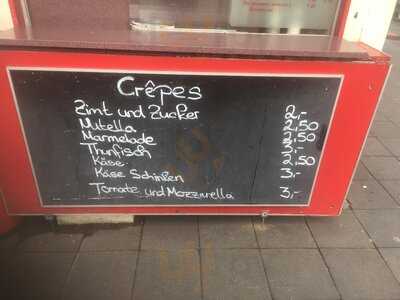 Crêpes
Zimt und Zucker 2,-
Nutella 2,50
Marmelade 2,50
Thunfisch 3,-
Käse 2,50
Käse Schinken 3,-
Tomate und Mozzarella 3,-